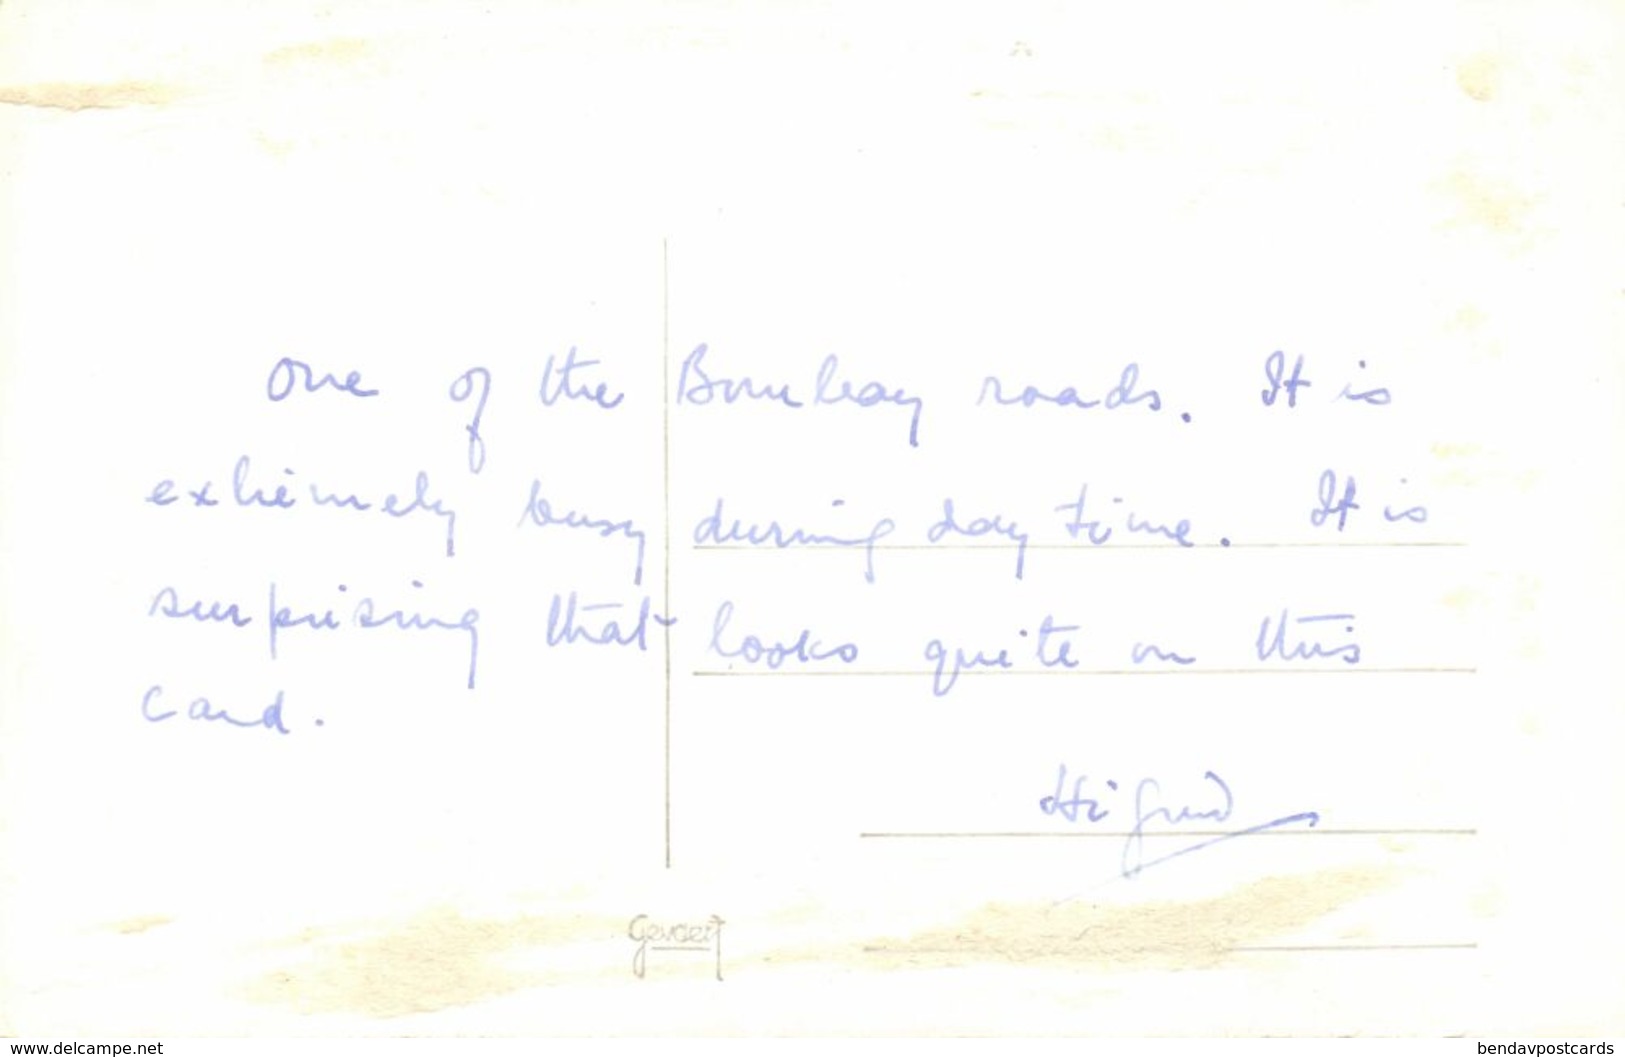 One of the Bombay roads. It is
extremely busy during day time. It is
surprising that looks quite on this
card.
Gevaert
www.delcampe.net
bendavpostcards